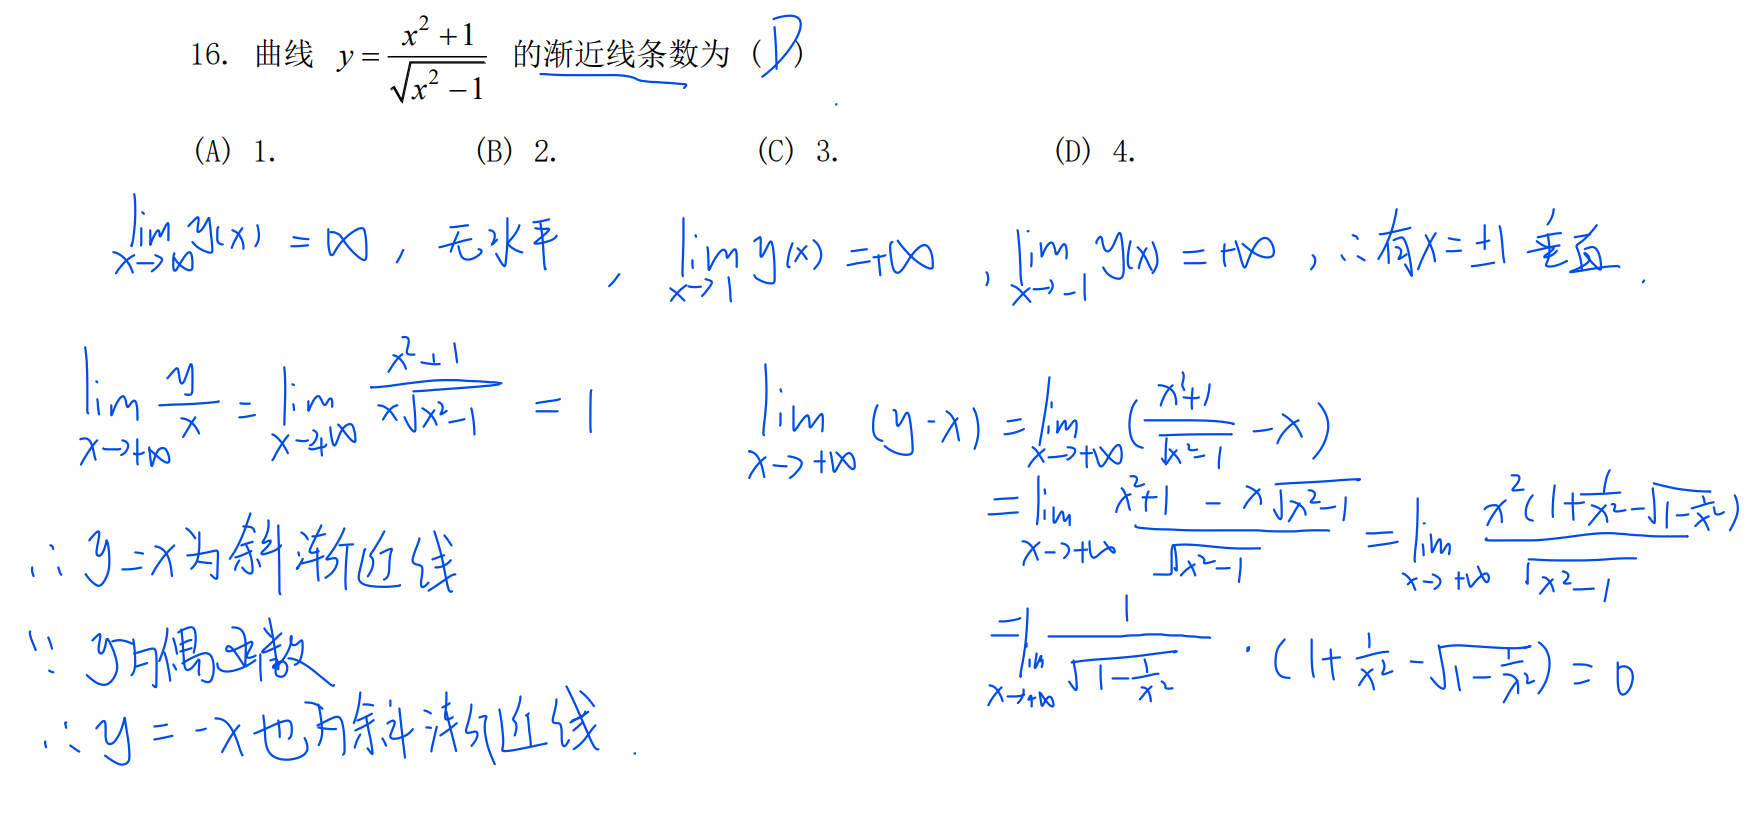 16. 曲线 y = (x² + 1) / √(x² − 1) 的渐近线条数为 ( D )
(A) 1. (B) 2. (C) 3. (D) 4.
lim_{x→∞} y(x) = ∞ , 无水平 , lim_{x→1} y(x) = +∞ , lim_{x→-1} y(x) = +∞ , ∴ 有 x = ±1 垂直 .
lim_{x→+∞} y/x = lim_{x→+∞} (x²+1) / (x√(x²−1)) = 1
lim_{x→+∞} (y-x) = lim_{x→+∞} ( (x²+1)/√(x²−1) − x )
= lim_{x→+∞} (x²+1 − x√(x²−1)) / √(x²−1) = lim_{x→+∞} x²(1+1/x² − √(1−1/x²)) / √(x²−1)
= lim_{x→+∞} 1/√(1−1/x²) · (1+1/x² − √(1−1/x²)) = 0
∴ y = x 为斜渐近线
∵ y为偶函数
∴ y = -x 也为斜渐近线 .